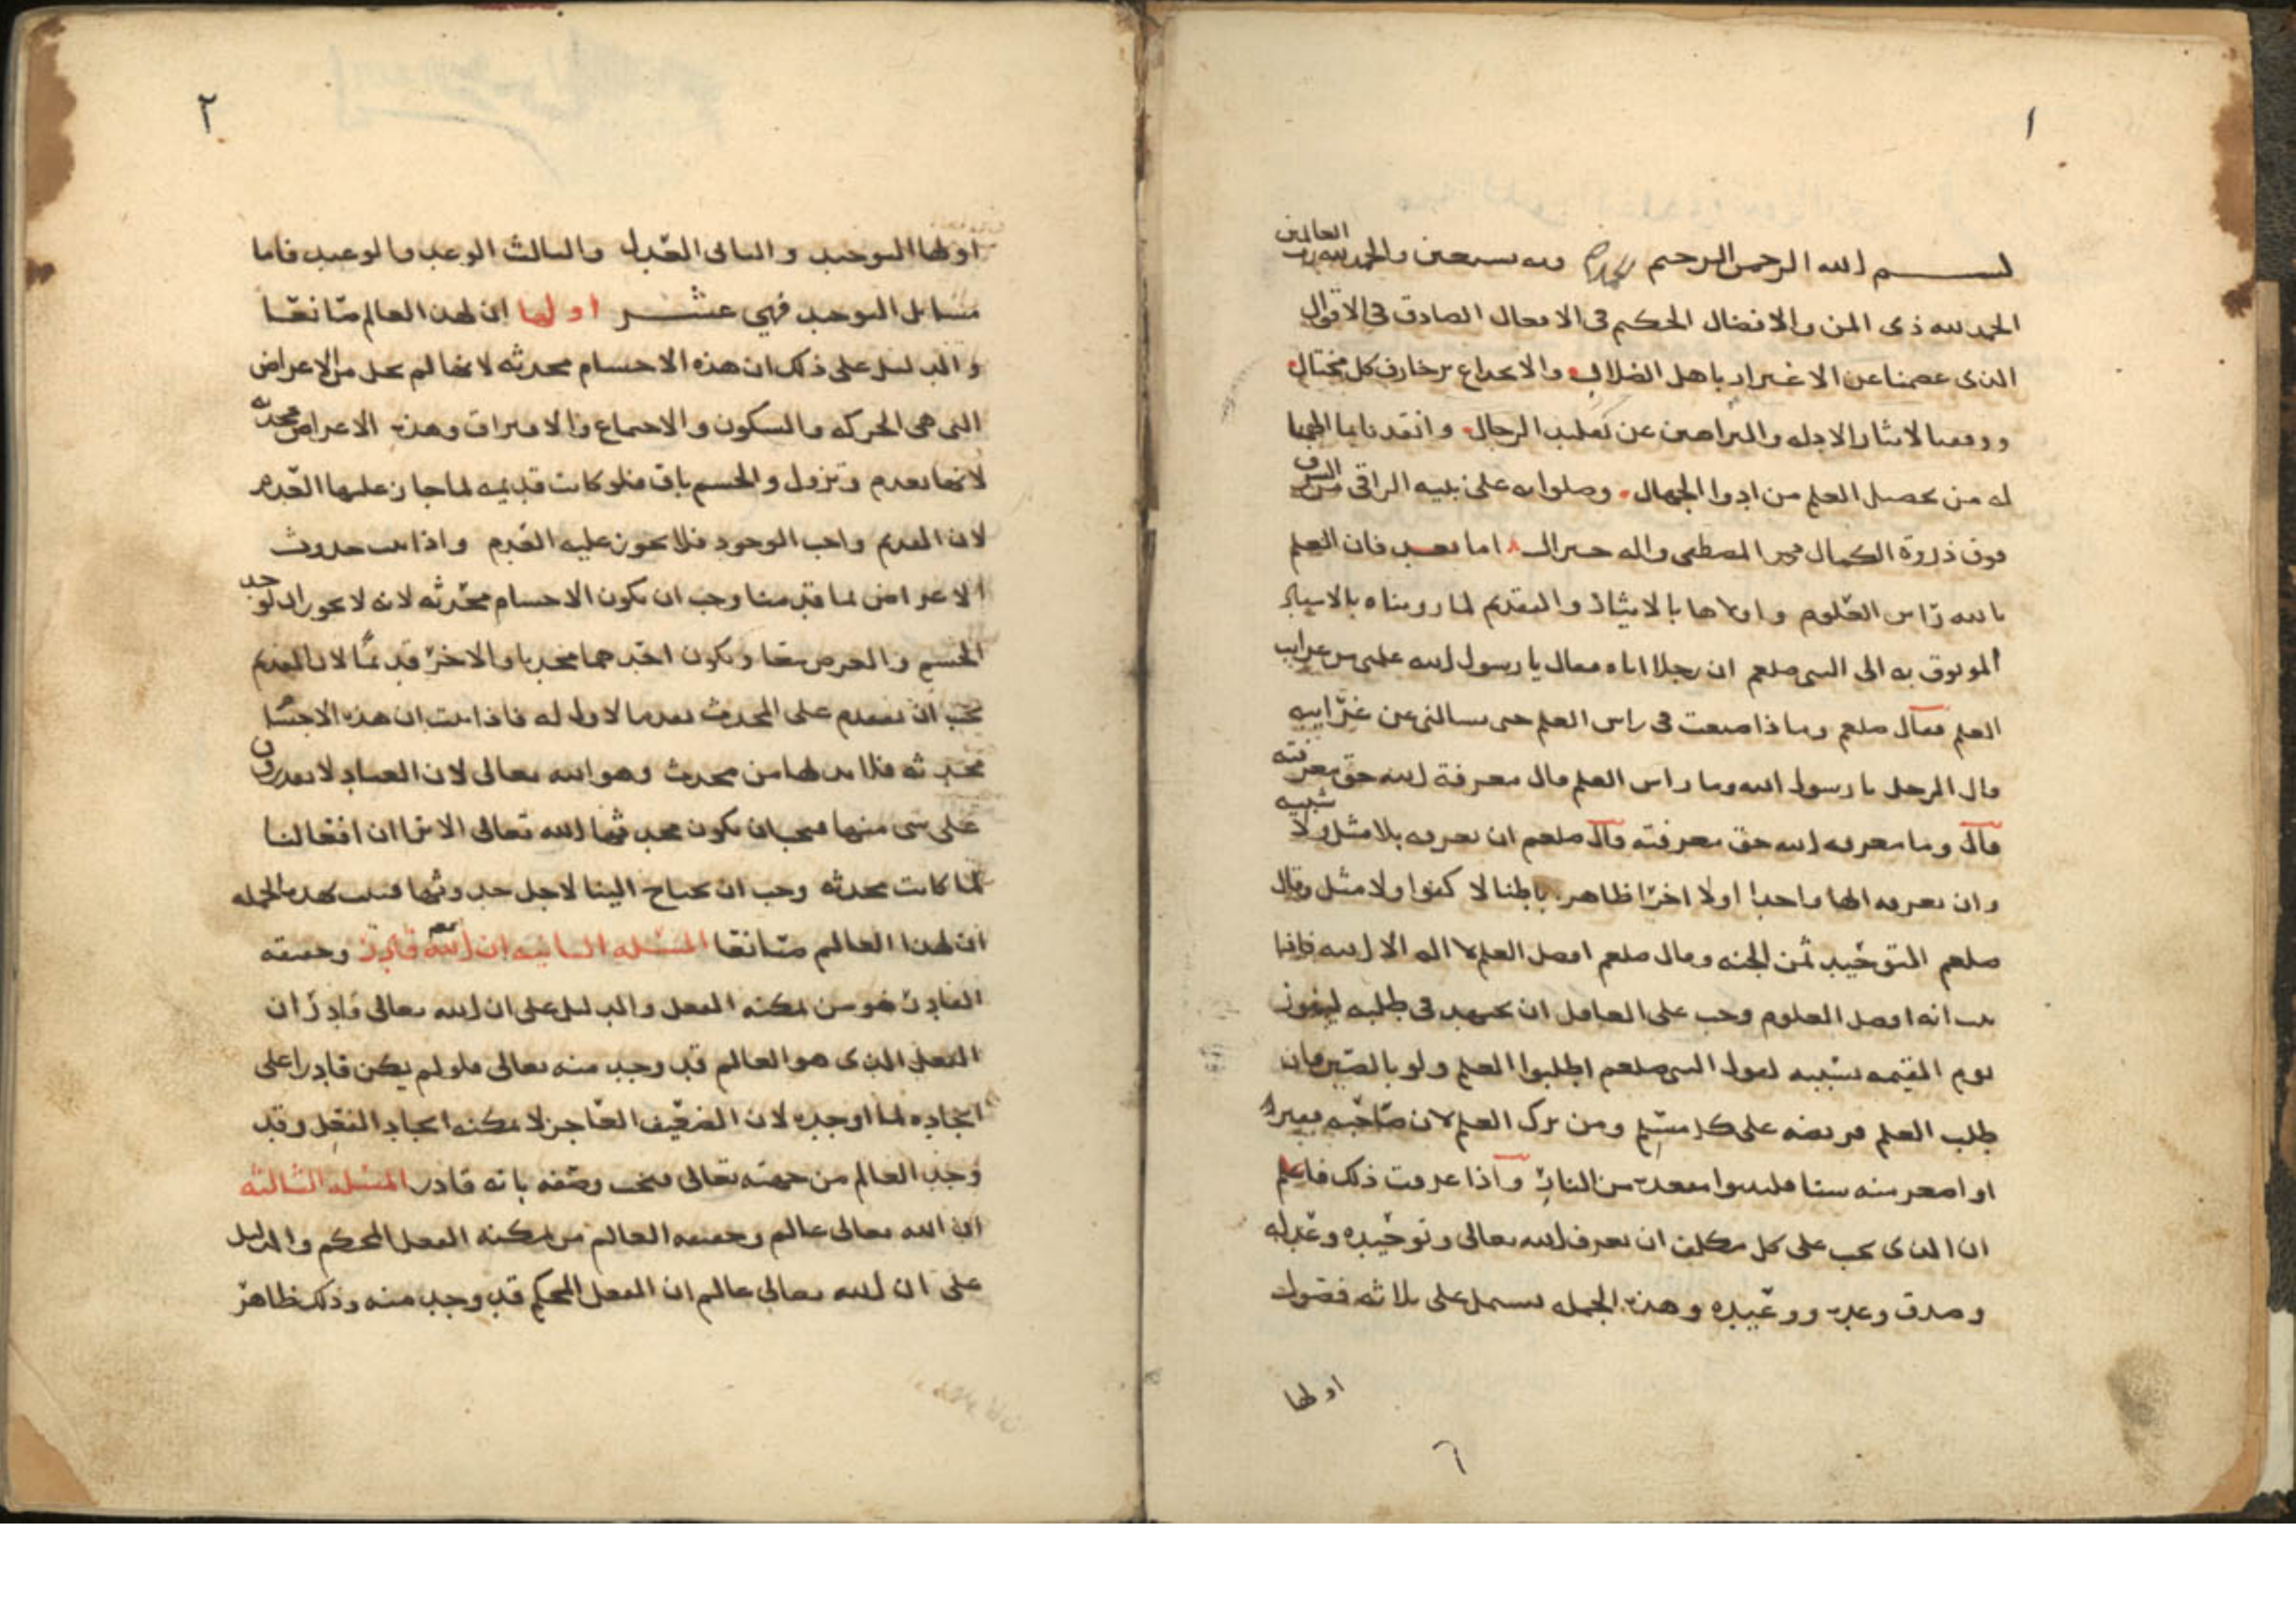 ١
بسم الله الرحمن الرحيم وبه نستعين والحمد لله رب العالمين
الحمد لله ذى المن والافضال الحكيم فى الافعال الصادق فى الاقوال
الذى عصمنا عن الاغترار باهل الضلال والانخداع بزخارف كل مختال
ووفقنا لايثار الادله والبراهين عن تقليد الرجال وانقدنا بما الهمنا
له من تحصيل العلم من ادوا الجهال وصلواته على نبيه الراقى من الشرف
فوق ذروة الكمال محمد المصطفى واله خير ال اما بعد فان العلم
بالله راس العلوم واولاها بالايثار والتقديم لما رويناه بالاسناد
الموثوق به الى النبى صلعم ان رجلا اتاه فقال يا رسول الله علمنى من غرايب
العلم فقال صلعم وماذا صنعت فى راس العلم حتى تسالنى عن غرايبه
قال الرجل يا رسول الله وما راس العلم قال معرفة الله حق معرفته
قال وما معرفه الله حق معرفته قال صلعم ان تعرفه بلا مثل ولا شبيه
وان تعرفه الها واحدا اولا اخرا ظاهرا باطنا لا كفوا ولا مثل وقال
صلعم التوحيد ثمن الجنه وقال صلعم افضل العلم لا اله الا الله فاذا
ثبت انه افضل العلوم وجب على العاقل ان يجتهد فى طلبه ليفوز
يوم القيمه بسببه لقول النبى صلعم اطلبوا العلم ولو بالصين فان
طلب العلم فريضه على كل مسلم ومن ترك العلم لان صاحبه فقيرا
او اصغر منه سنا فليتبوا مقعده من النار واذا عرفت ذلك فاعلم
ان الذى يجب على كل مكلف ان يعرف الله تعالى وتوحيده وعدله
وصدق وعده ووعيده وهذه الجمله تشتمل على ثلاثه فصول
اولها
٢
اولها التوحيد والثانى العدل والثالث الوعد والوعيد فاما
مسايل التوحيد فهى عشر اولها ان لهذا العالم صانعا
والدليل على ذلك ان هذه الاجسام محدثه لانها لم تخل من الاعراض
التى هى الحركه والسكون والاجتماع والافتراق وهذه الاعراض محدثه
لانها تعدم وتزول والجسم باق فلو كانت قديمه لما جاز عليها العدم
لان القديم واجب الوجود فلا يجوز عليه العدم واذا ثبت حدوث
الاعراض لما قدمنا وجب ان يكون الاجسام محدثه لانه لا يجوز ان يوجد
الجسم والعرض معا ويكون احدهما محدثا والاخر قديما لان القديم
يجب ان يتقدم على المحدث تقدما لا اول له فاذا ثبت ان هذه الاجسام
محدثه فلا بد لها من محدث وهو الله تعالى لان العباد لا يقدرون
على شى منها فيجب ان يكون محدثها الله تعالى الا ترا ان افعالنا
لما كانت محدثه وجب ان تحتاج الينا لاجل حدوثها فثبت بهذه الجمله
ان لهذا العالم صانعا المسئله الثانيه ان الله تعـ قادر وحقيقه
القادر هو من يمكنه الفعل والدليل على ان الله تعالى قادر ان
الفعل الذى هو العالم قد وجد منه تعالى فلو لم يكن قادرا على
ايجاده لما اوجده لان الضعيف العاجز لا يمكنه ايجاد الفعل وقد
وجد العالم من جهته تعالى فيجب وصفه بانه قادر المسئله الثالثه
ان الله تعالى عالم وحقيقه العالم من يمكنه الفعل المحكم والدليل
على ان الله تعالى عالم ان الفعل المحكم قد وجد منه وذلك ظاهر